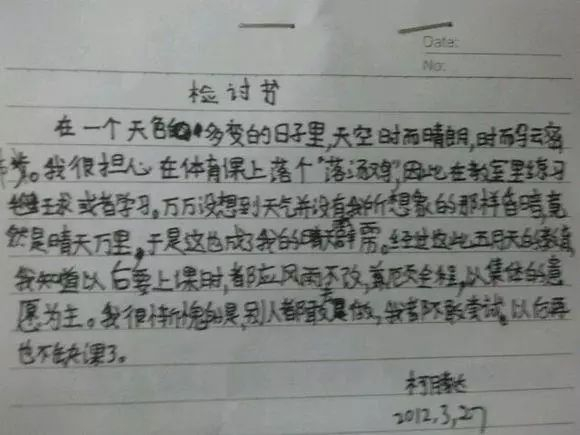 Date:
No:
检讨书
在一个天色多变的日子里,天空时而晴朗,时而乌云密
布。我很担心在体育课上落个“落汤鸡”,因此在教室里练习
球或者学习。万万没想到天气并没有我所想象的那样昏暗,竟
然是晴天万里,于是这也成了我的晴天霹雳。经过这此五月天的教育
我知道以后要上课时,都应风雨不改,全程,以集体的意
愿为主。我很惭愧的是,别人都敢做,我都不敢尝试。以后再
也不缺课了。
柯腾达
2012.3.27